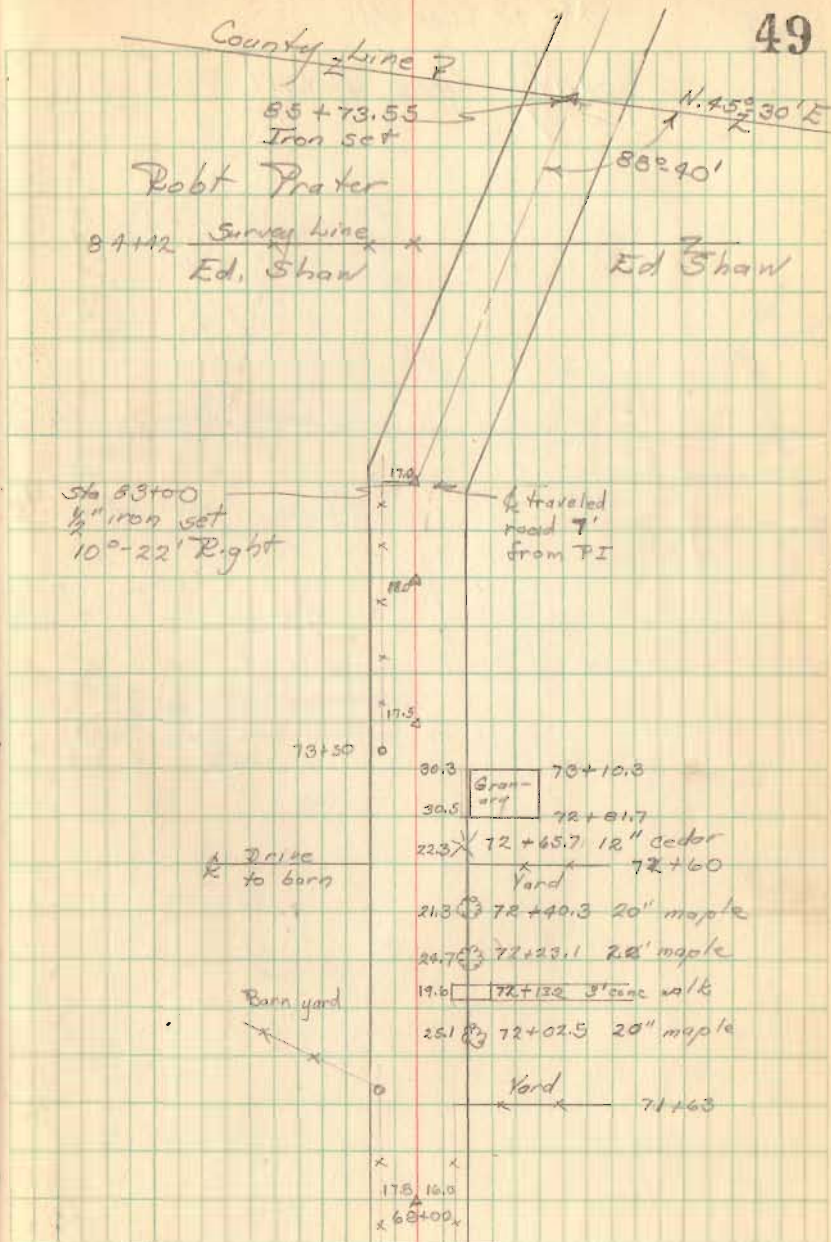 49
County Line
N. 45° 30' E
85 + 73.55
Iron set
88° 40'
Robt Prater
84+42 Survey Line
Ed. Shaw
Ed Shaw
17.0
Sta 83+00
1/2" iron set
10°-22' Right
℄ traveled
road 7'
from PI
18.0
17.5
73+50
30.3 73+10.3
Gran-
ary
30.5 72+81.7
22.3 72+65.7 12" cedar
℄ Drive
to barn
72+60
Yard
21.3 72+40.3 20" maple
24.7 72+23.1 maple
19.6 72+13.2 3' conc walk
Barn yard
25.1 72+02.5 20" maple
Yard
71+63
17.8 16.0
68+00